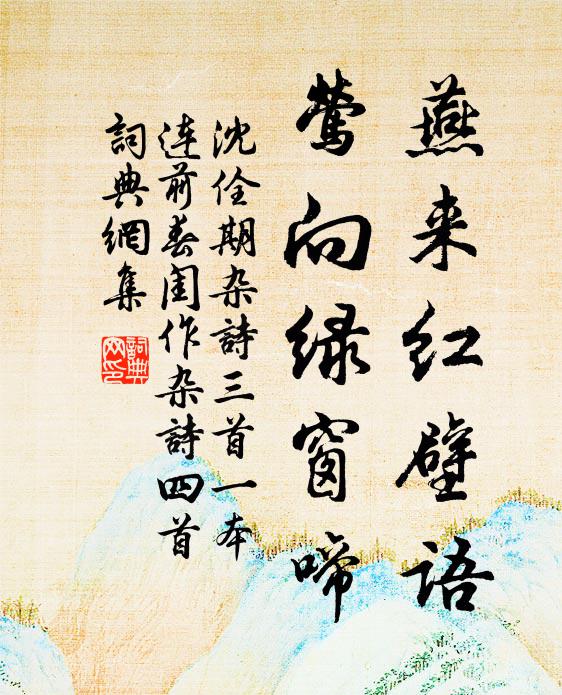 燕来红壁语
莺向绿窗啼
沈佺期杂詩三首一本
连前春闺作杂詩四首
詞典網集
詞典網印